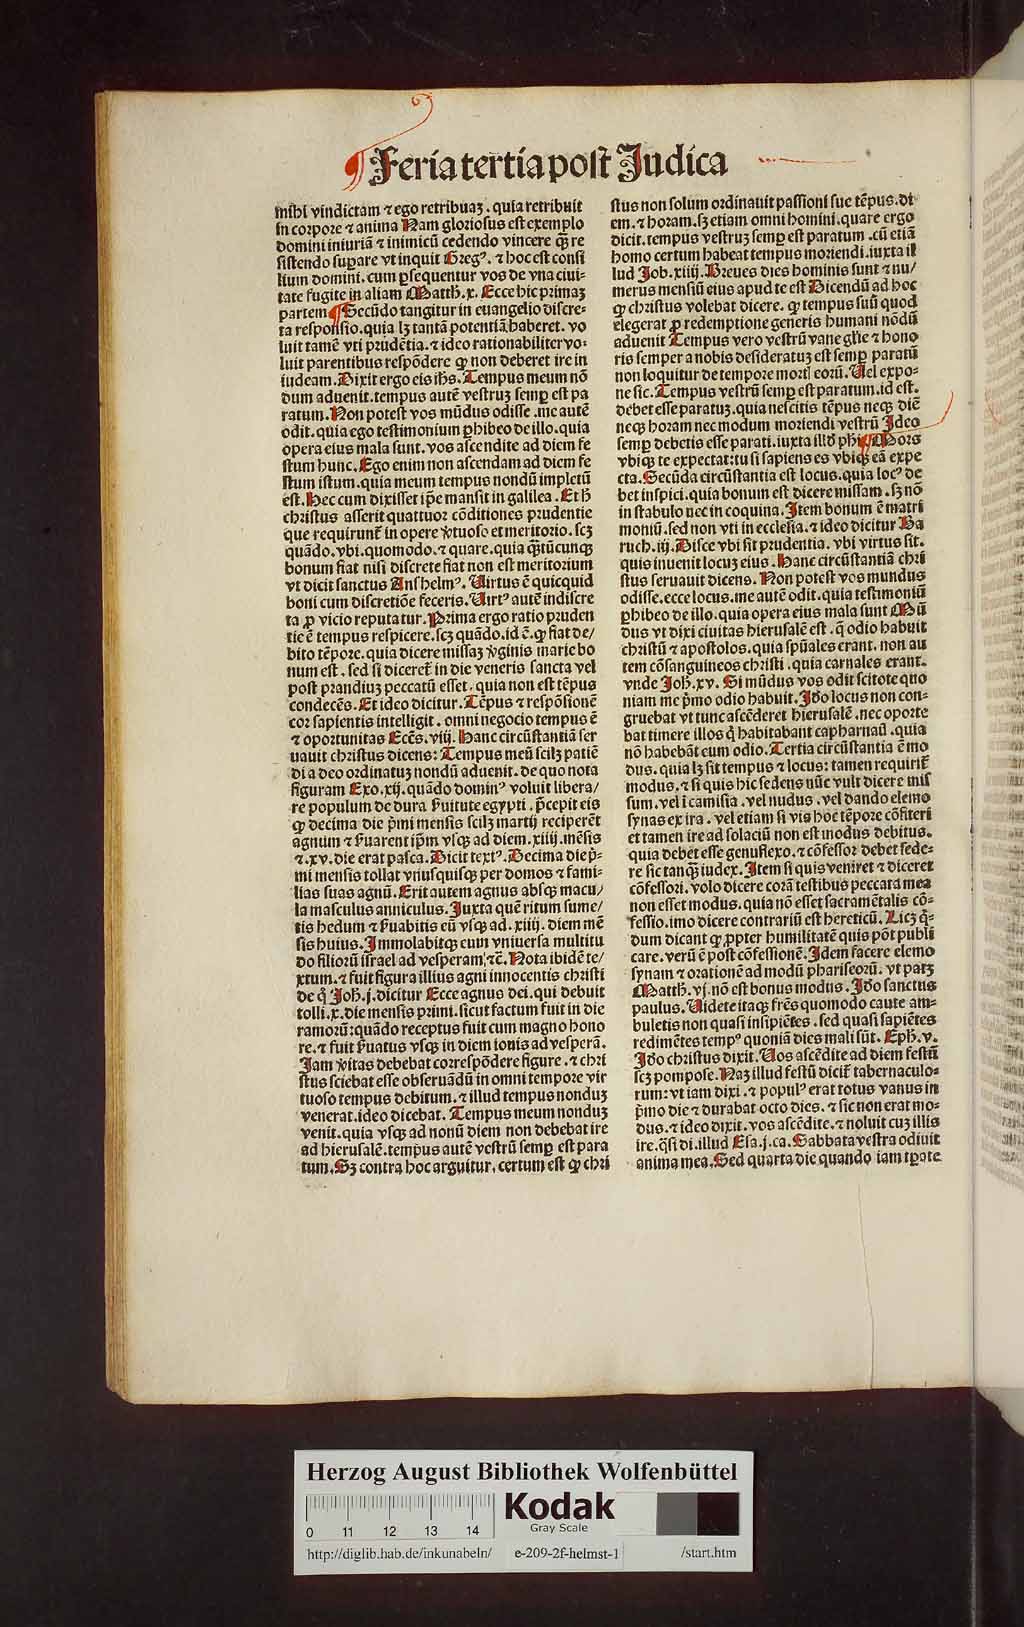 ¶ Feria tertia post Judica
mihi vindictam ⁊ ego retribuaꝫ . quia retribuit
in corpore ⁊ anima Nam gloriosus est exemplo
domini iniuriā ⁊ inimicū cedendo vincere qꝫ̄ re
sistendo suꝑare vt inquit Gregꝰ. ⁊ hoc est consi
lium domini . cum ꝑsequentur vos de vna ciui-
tate fugite in aliam Matth. x. Ecce hic primaꝫ
partem ¶ Secūdo tangitur in euangelio discre-
ta responsio. quia lꝫ tantā potentiā haberet. vo
luit tamē vti prudētia. ⁊ ideo rationabiliter vo-
luit parentibus respōdere ꝙ non deberet ire in
iudeam. Dixit ergo eis ihs. Tempus meum nō
dum aduenit. tempus autē vestruꝫ semꝑ est pa
ratum. Non potest vos mūdus odisse . me autē
odit. quia ego testimonium ꝑhibeo de illo. quia
opera eius mala sunt. vos ascendite ad diem fe
stum hunc. Ego enim non ascendam ad diem fe
stum istum. quia meum tempus nondū impletū
est. Hec cum dixisset ip̄e mansit in galilea . Et h̄
christus asserit quattuor cōditiones prudentie
que requirunt̄ in opere v̓tuoso et meritorio. scꝫ
quādo. vbi. quomodo. ⁊ quare. quia qꝫ̄tūcunqꝫ
bonum fiat nisi discrete fiat non est meritorium
vt dicit sanctus Anshelmꝰ. Uirtus ē quicquid
boni cum discretiōe feceris. Uirtꝰ autē indiscre
ta ꝓ vicio reputatur. Prima ergo ratio pruden
tie ē tempus respicere. scꝫ quādo. id ē. ꝙ fiat de/
bito tēpore. quia dicere missaꝫ v̓ginis marie bo
num est . sed si diceret̄ in die veneris sancta vel
post prandiuꝫ peccatū esset . quia non est tēpus
condecēs. Et ideo dicitur. Tēpus ⁊ respōsionē
cor sapientis intelligit . omni negocio tempus ē
⁊ oportunitas Eccēs. viij. Hanc circūstantiā ser
uauit christus dicens: Tempus meū scilꝫ patiē
di a deo ordinatuꝫ nondū aduenit. de quo nota
figuram Exo. xij. quādo dominꝰ voluit libera/
re populum de dura ẜuitute egypti . p̄cepit eis
ꝙ decima die p̓mi mensis scilꝫ martij reciperēt
agnum ⁊ ẜuarent ip̄m vsqꝫ ad diem . xiiij. mēsis
⁊ .xv. die erat pasca. Dicit textꝰ. Decima die p̓-
mi mensis tollat vnusquisqꝫ per domos ⁊ fami-
lias suas agnū. Erit autem agnus absqꝫ macu/
la masculus anniculus. Juxta quē ritum sume/
tis hedum ⁊ ẜuabitis eū vsqꝫ ad. xiiij. diem mē
sis huius. Immolabitqꝫ cum vniuersa multitu
do filiorū israel ad vesperam ⁊c̄. Nota ibidē te/
xtum. ⁊ fuit figura illius agni innocentis christi
de q̊ Joh. j. dicitur Ecce agnus dei. qui debuit
tolli. x. die mensis primi. sicut factum fuit in die
ramorū: quādo receptus fuit cum magno hono
re. ⁊ fuit ẜuatus vsqꝫ in diem iouis ad vesperā.
Jam v̓itas debebat correspōdere figure . ⁊ chri
stus sciebat esse obseruādū in omni tempore vir
tuoso tempus debitum. ⁊ illud tempus nonduꝫ
venerat. ideo dicebat. Tempus meum nonduꝫ
venit. quia vsqꝫ ad nonū diem non debebat ire
ad hierusalē. tempus autē vestrū semꝑ est para
tum. Sꝫ contra hoc arguitur. certum est ꝙ chri
stus non solum ordinauit passioni sue tēpus. di
em. ⁊ horam. sꝫ etiam omni homini. quare ergo
dicit. tempus vestruꝫ semꝑ est paratum . cū etiā
homo certum habeat tempus moriendi. iuxta il
lud Job. xiiij. Breues dies hominis sunt ⁊ nu/
merus mensiū eius apud te est Dicendū ad hoc
ꝙ christus volebat dicere. ꝙ tempus suū quod
elegerat ꝓ redemptione generis humani nōdū
aduenit Tempus vero vestrū vane gl̄ie ⁊ hono
ris semper a nobis desideratuꝫ est semꝑ paratū
non loquitur de tempore mortꝭ eorū. Uel expo-
ne sic. Tempus vestrū semꝑ est paratum. id est.
debet esse paratuꝫ. quia nescitis tēpus neqꝫ diē
neqꝫ horam nec modum moriendi vestrū Ideo
semꝑ debetis esse parati. iuxta illd̓ phi. ¶ Mors
vbiqꝫ te expectat: tu si sapiens es vbiqꝫ eā expe
cta. Secūda circūstantia est locus. quia locꝰ de
bet inspici. quia bonum est dicere missam . sꝫ nō
in stabulo nec in coquina. Item bonum ē matri
moniū. sed non vti in ecclesia. ⁊ ideo dicitur Ba
ruch. iij. Disce vbi sit prudentia. vbi virtus sit.
quis inuenit locuꝫ eius. Hanc circūstantiā chri
stus seruauit dicens. Non potest vos mundus
odisse. ecce locus. me autē odit. quia testimoniū
ꝑhibeo de illo. quia opera eius mala sunt Mū
dus vt dixi ciuitas hierusalē est . q̄ odio habuit
christū ⁊ apostolos. quia sp̄uales erant. non au
tem cōsanguineos christi . quia carnales erant.
vnde Joh. xv. Si mūdus vos odit scitote quo
niam me p̓mo odio habuit. Id̓o locus non con-
gruebat vt tunc ascēderet hierusalē . nec oporte
bat timere illos q̓ habitabant capharnaū . quia
nō habebāt eum odio. Tertia circūstantia ē mo
dus. quia lꝫ sit tempus ⁊ locus: tamen requirit̄
modus. ⁊ si quis hic sedens nūc vult dicere mis
sum. vel ī camisia . vel nudus . vel dando elemo
synas ex ira . vel etiam si vis hoc tēpore cōfiteri
et tamen ire ad solaciū non est modus debitus.
quia debet esse genuflexo. ⁊ cōfessor debet sede-
re sic tanqꝫ̄ iudex. Item si quis veniret ⁊ diceret
cōfessori. volo dicere corā testibus peccata mea
non esset modus. quia nō esset sacramētalis cō-
fessio. imo dicere contrariū est hereticū. Licꝫ q̓-
dum dicant ꝙ ꝓpter humilitatē quis pōt publi
care. verū ē post cōfessionē. Idem facere elemo
synam ⁊ orationē ad modū phariseorū. vt patꝫ
Matth. vj. nō est bonus modus. Id̓o sanctus
paulus. Uidete itaqꝫ fr̄es quomodo caute am-
buletis non quasi insipiētes . sed quasi sapiētes
redimētes tempꝰ quoniā dies mali sūt. Eph. v.
Id̓o christus dixit. Uos ascēdite ad diem festū
scꝫ pompose. Naꝫ illud festū dicit̄ tabernaculo-
rum: vt iam dixi . ⁊ populꝰ erat totus vanus in
p̓mo die ⁊ durabat octo dies. ⁊ sic non erat mo-
dus. ⁊ ideo dixit. vos ascēdite. ⁊ noluit cuꝫ illis
ire. q̄si di. illud Esa. j. ca. Sabbata vestra odiuit
anima mea. Sed quarta die quando iam tꝑate
Herzog August Bibliothek Wolfenbüttel
0 11 12 13 14
Kodak
Gray Scale
http://diglib.hab.de/inkunabeln/ e-209-2f-helmst-1 /start.htm